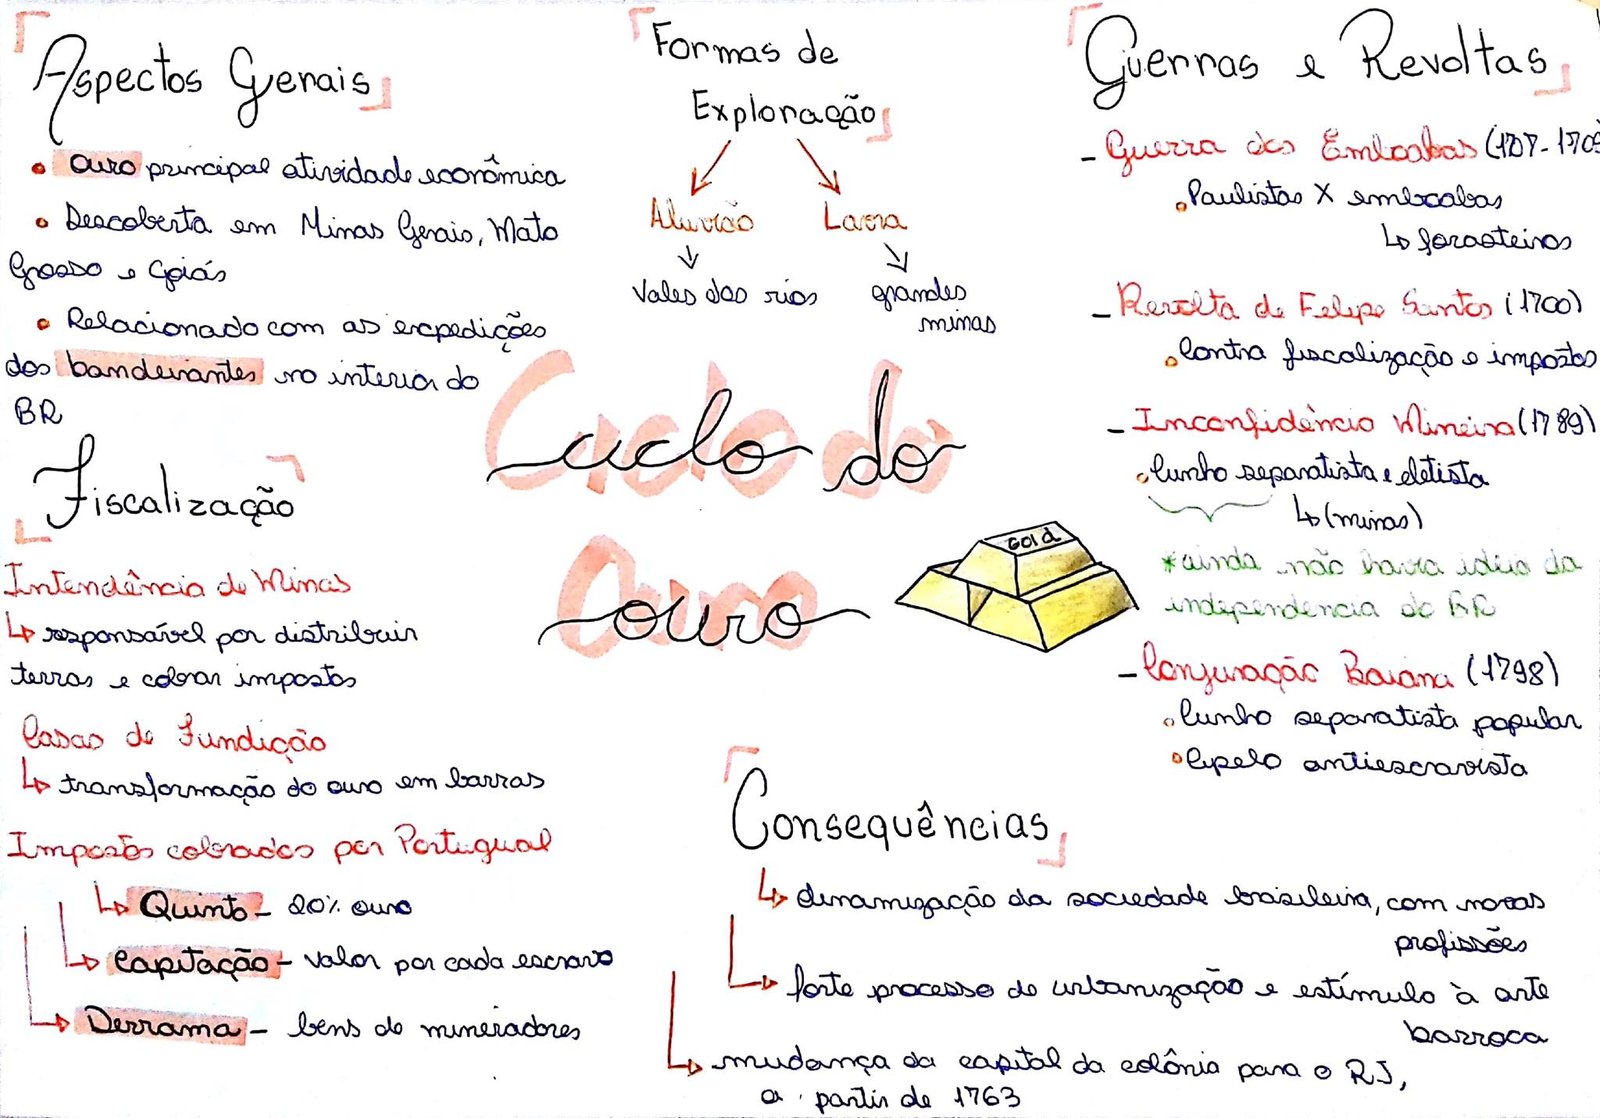 Aspectos Gerais
• Ouro principal atividade econômica
• Descoberta em Minas Gerais, Mato
Grosso e Goiás
• Relacionado com as expedições
dos bandeirantes no interior do
BR
Fiscalização
Intendência de Minas
↳ responsável por distribuir
terras e cobrar impostos
Casas de Fundição
↳ transformação do ouro em barras
Impostos cobrados por Portugual
↳ Quinto - 20% ouro
↳ Capitação - valor por cada escravo
↳ Derrama - bens de mineradores
Formas de
Exploração
Aluvião Lavra
Vales dos rios grandes
minas
Ciclo do
ouro
Gold
Guerras e Revoltas
- Guerra dos Emboabas (1707-1709
• Paulistas X emboabas
↳ forasteiros
- Revolta de Felipe Santos (1700)
• Contra fiscalização e impostos
- Inconfidência Mineira (1789)
• Cunho separatista e eletista
↳ (minas)
*ainda não havia ideia da
independencia do BR
- Conjuração Baiana (1798)
• Cunho separatista popular
• Apelo antiescravista
Consequências
↳ dinamização da sociedade brasileira, com novas
profissões
↳ forte processo de urbanização e estímulo à arte
barroca
↳ mudança da capital da colônia para o RJ,
a partir de 1763